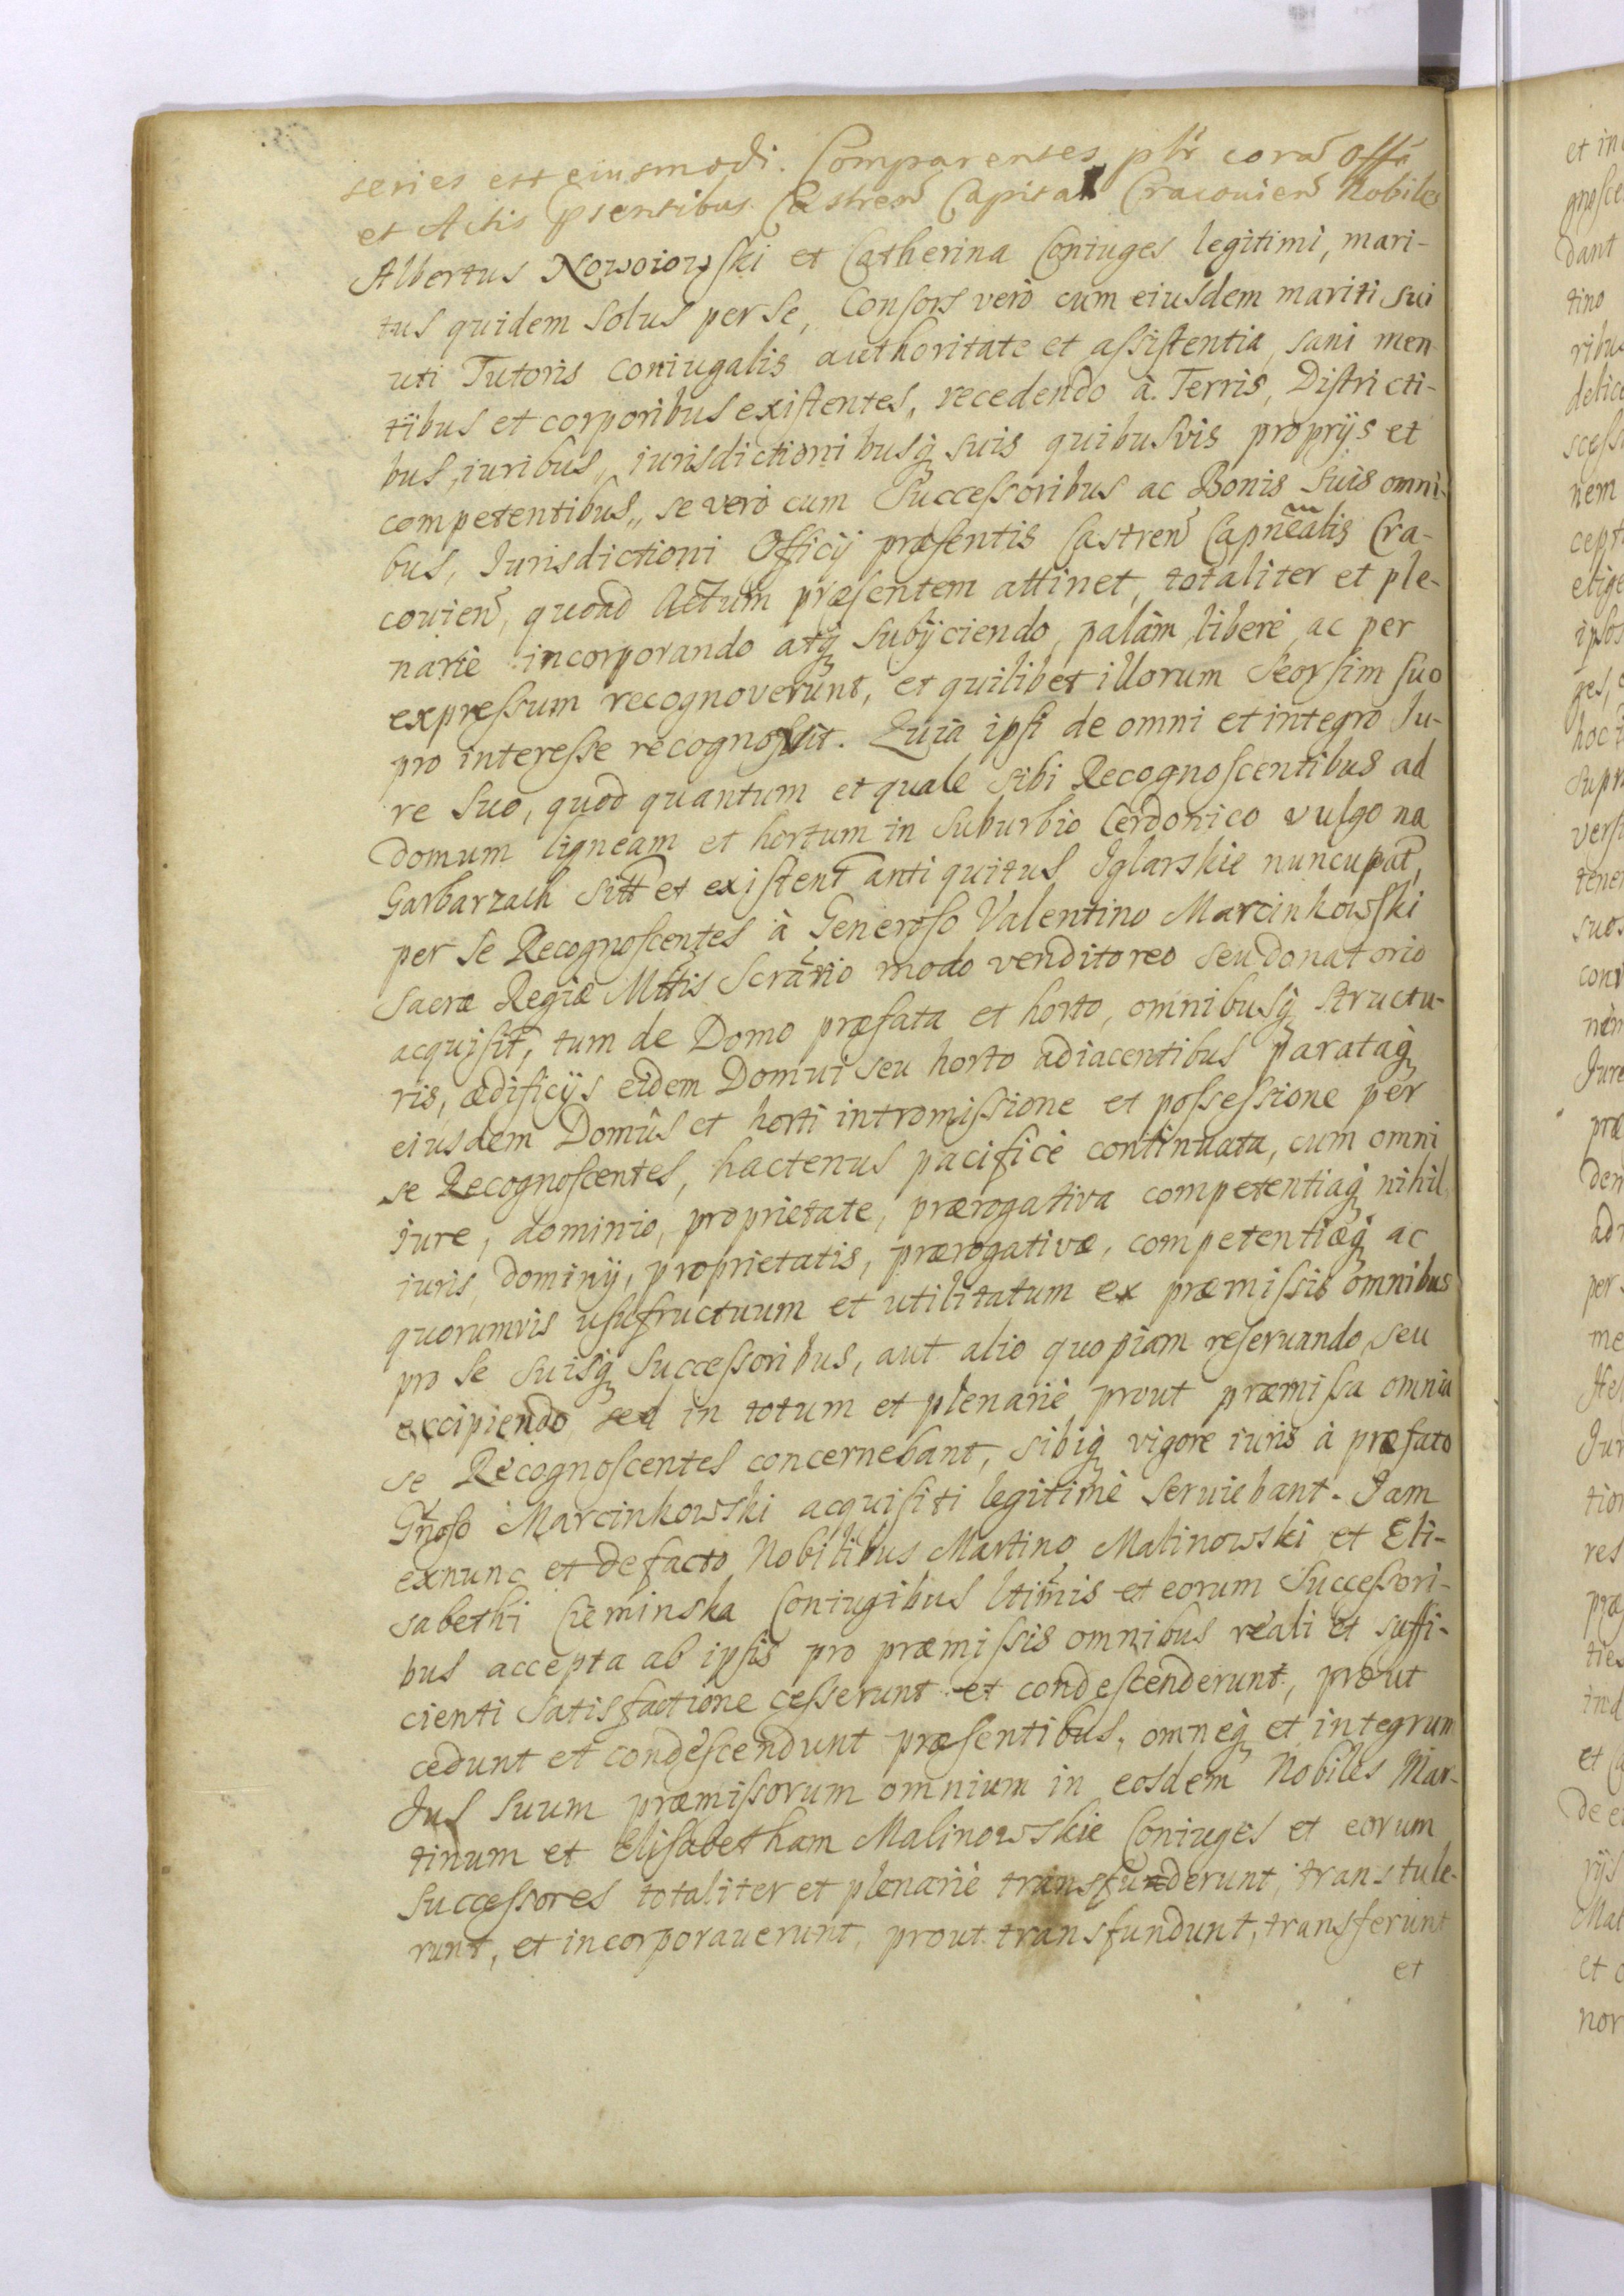 series est eiusmodi. Comparentes plr̃ corã Offõ
et Actis p̃sentibus Castreñ Capital Cracovieñ Nobiles
Albertus Nowoiowski et Catherina Coniuges legitimi, mari-
tus quidem solus per se, Consors verò cum eiusdem mariti sui
uti Tutoris coniugalis authoritate et assistentia, sani men
tibus et corporibus existentes, recedendo à Terris, Districti-
bus, iuribus, iurisdictionibusq́ suis quibusvis proprijs et
competentibus, se verò cum Successoribus ac Bonis suis omni-
bus, Iurisdictioni Officij præsentis Castreñ Capñealis Cra-
covieñ, quoad Actum præsentem attinet, totaliter et ple-
nariè incorporando atq́ subijciendo, palàm liberè ac per
expressum recognoverunt, et quilibet illorum seorsim suo
pro interesse recognovit. Quia ipsi de omni et integro Iu-
re suo, quod quantum et quale sibi Recognoscentibus ad
domum ligneam et hortum in Suburbio Cerdonico vulgo na
Garbarzach sitt̃ et existent̃ antiquitus Iglarskie nuncupat̃,
per se Recognoscentes à Generoso Valentino Marcinkowski
Sacræ Regiæ Mttis Scrãrio modo venditoreo seu donatorio
acquisit̃, tum de Domo præfata et horto, omnibusq́ structu-
ris, ædificijs eidem Domui seu horto adiacentibus parataq́
eiusdem Domûs et horti intromissione et possessione per
se Recognoscentes, hactenus pacificè continuata, cum omni
iure, dominio, proprietate, prærogativa competentiaq́ nihil
iuris, dominij, proprietatis, prærogativæ, competentiæq́ ac
quorumvis usufructuum et utilitatum ex præmissis omnibus
pro se suisq́ Successoribus, aut alio quopiam reservando, seu
excipiendo sed in totum et plenariè prout præmissa omnia
se Recognoscentes concernebant, sibiq́ vigore iuris à præfato
Gñoso Marcinkowski acquisiti legitimè serviebant. Iam
exnunc et de facto Nobilibus Martino Malinowski et Eli-
sabethi Cieminska Coniugibus ltimis et eorum Successori-
bus accepta ab ipsis pro præmissis omnibus reali et suffi-
cienti satisfactione cesserunt et condescenderunt, prout
cedunt et condescendunt præsentibus, omneq́ et integrum
Ius suum præmissorum omnium in eosdem Nobiles Mar-
tinum et Elisabetham Malinowskie Coniuges et eorum
Successores totaliter et plenariè transfunderunt, transtule-
runt, et incorporaverunt, prout transfundunt, transferunt
et